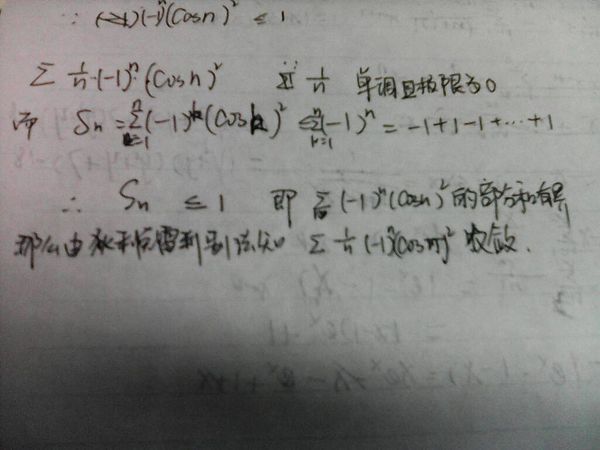 ∴ (-1)ⁿ(cosn)² ≤ 1
Σ 1/n·(-1)ⁿ·(cosn)² ∵ 1/n 单调且极限为0
而 Sn = Σ_{k=1}^{n} (-1)^k (cosk)² ≤ Σ_{k=1}^{n} (-1)ⁿ = -1+1-1+…+1
∴ Sn ≤ 1 即 Σ (-1)ⁿ(cosn)² 的部分和有界
那么由狄利克雷判别法知 Σ 1/n (-1)ⁿ(cosn)² 收敛.